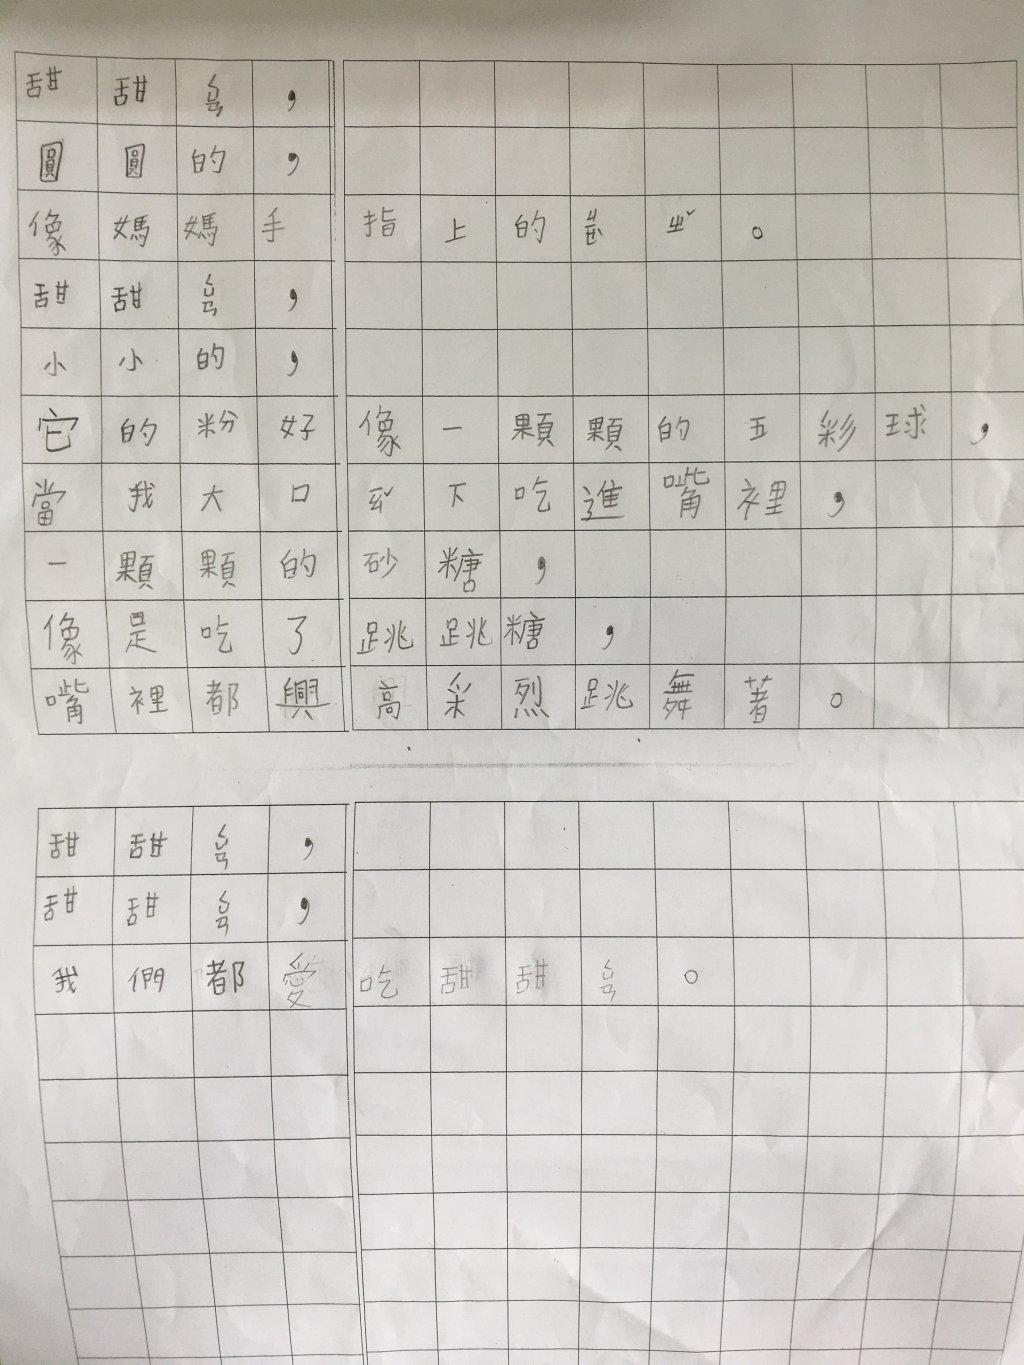 甜甜ㄑㄩㄢ，
圓圓的，
像媽媽手指上的ㄓˇ。
甜甜ㄑㄩㄢ，
小小的，
它的粉好像一顆顆的五彩球，
當我大口ㄧㄠˇ下吃進嘴裡，
一顆顆的砂糖，
像是吃了跳跳糖，
嘴裡都興高采烈跳舞著。
甜甜ㄑㄩㄢ，
甜甜ㄑㄩㄢ，
我們都愛吃甜甜ㄑㄩㄢ。